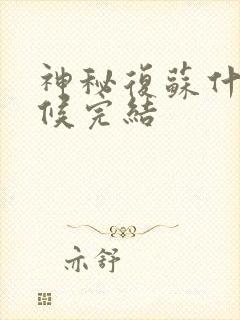 神秘復蘇什
候完結
亦舒